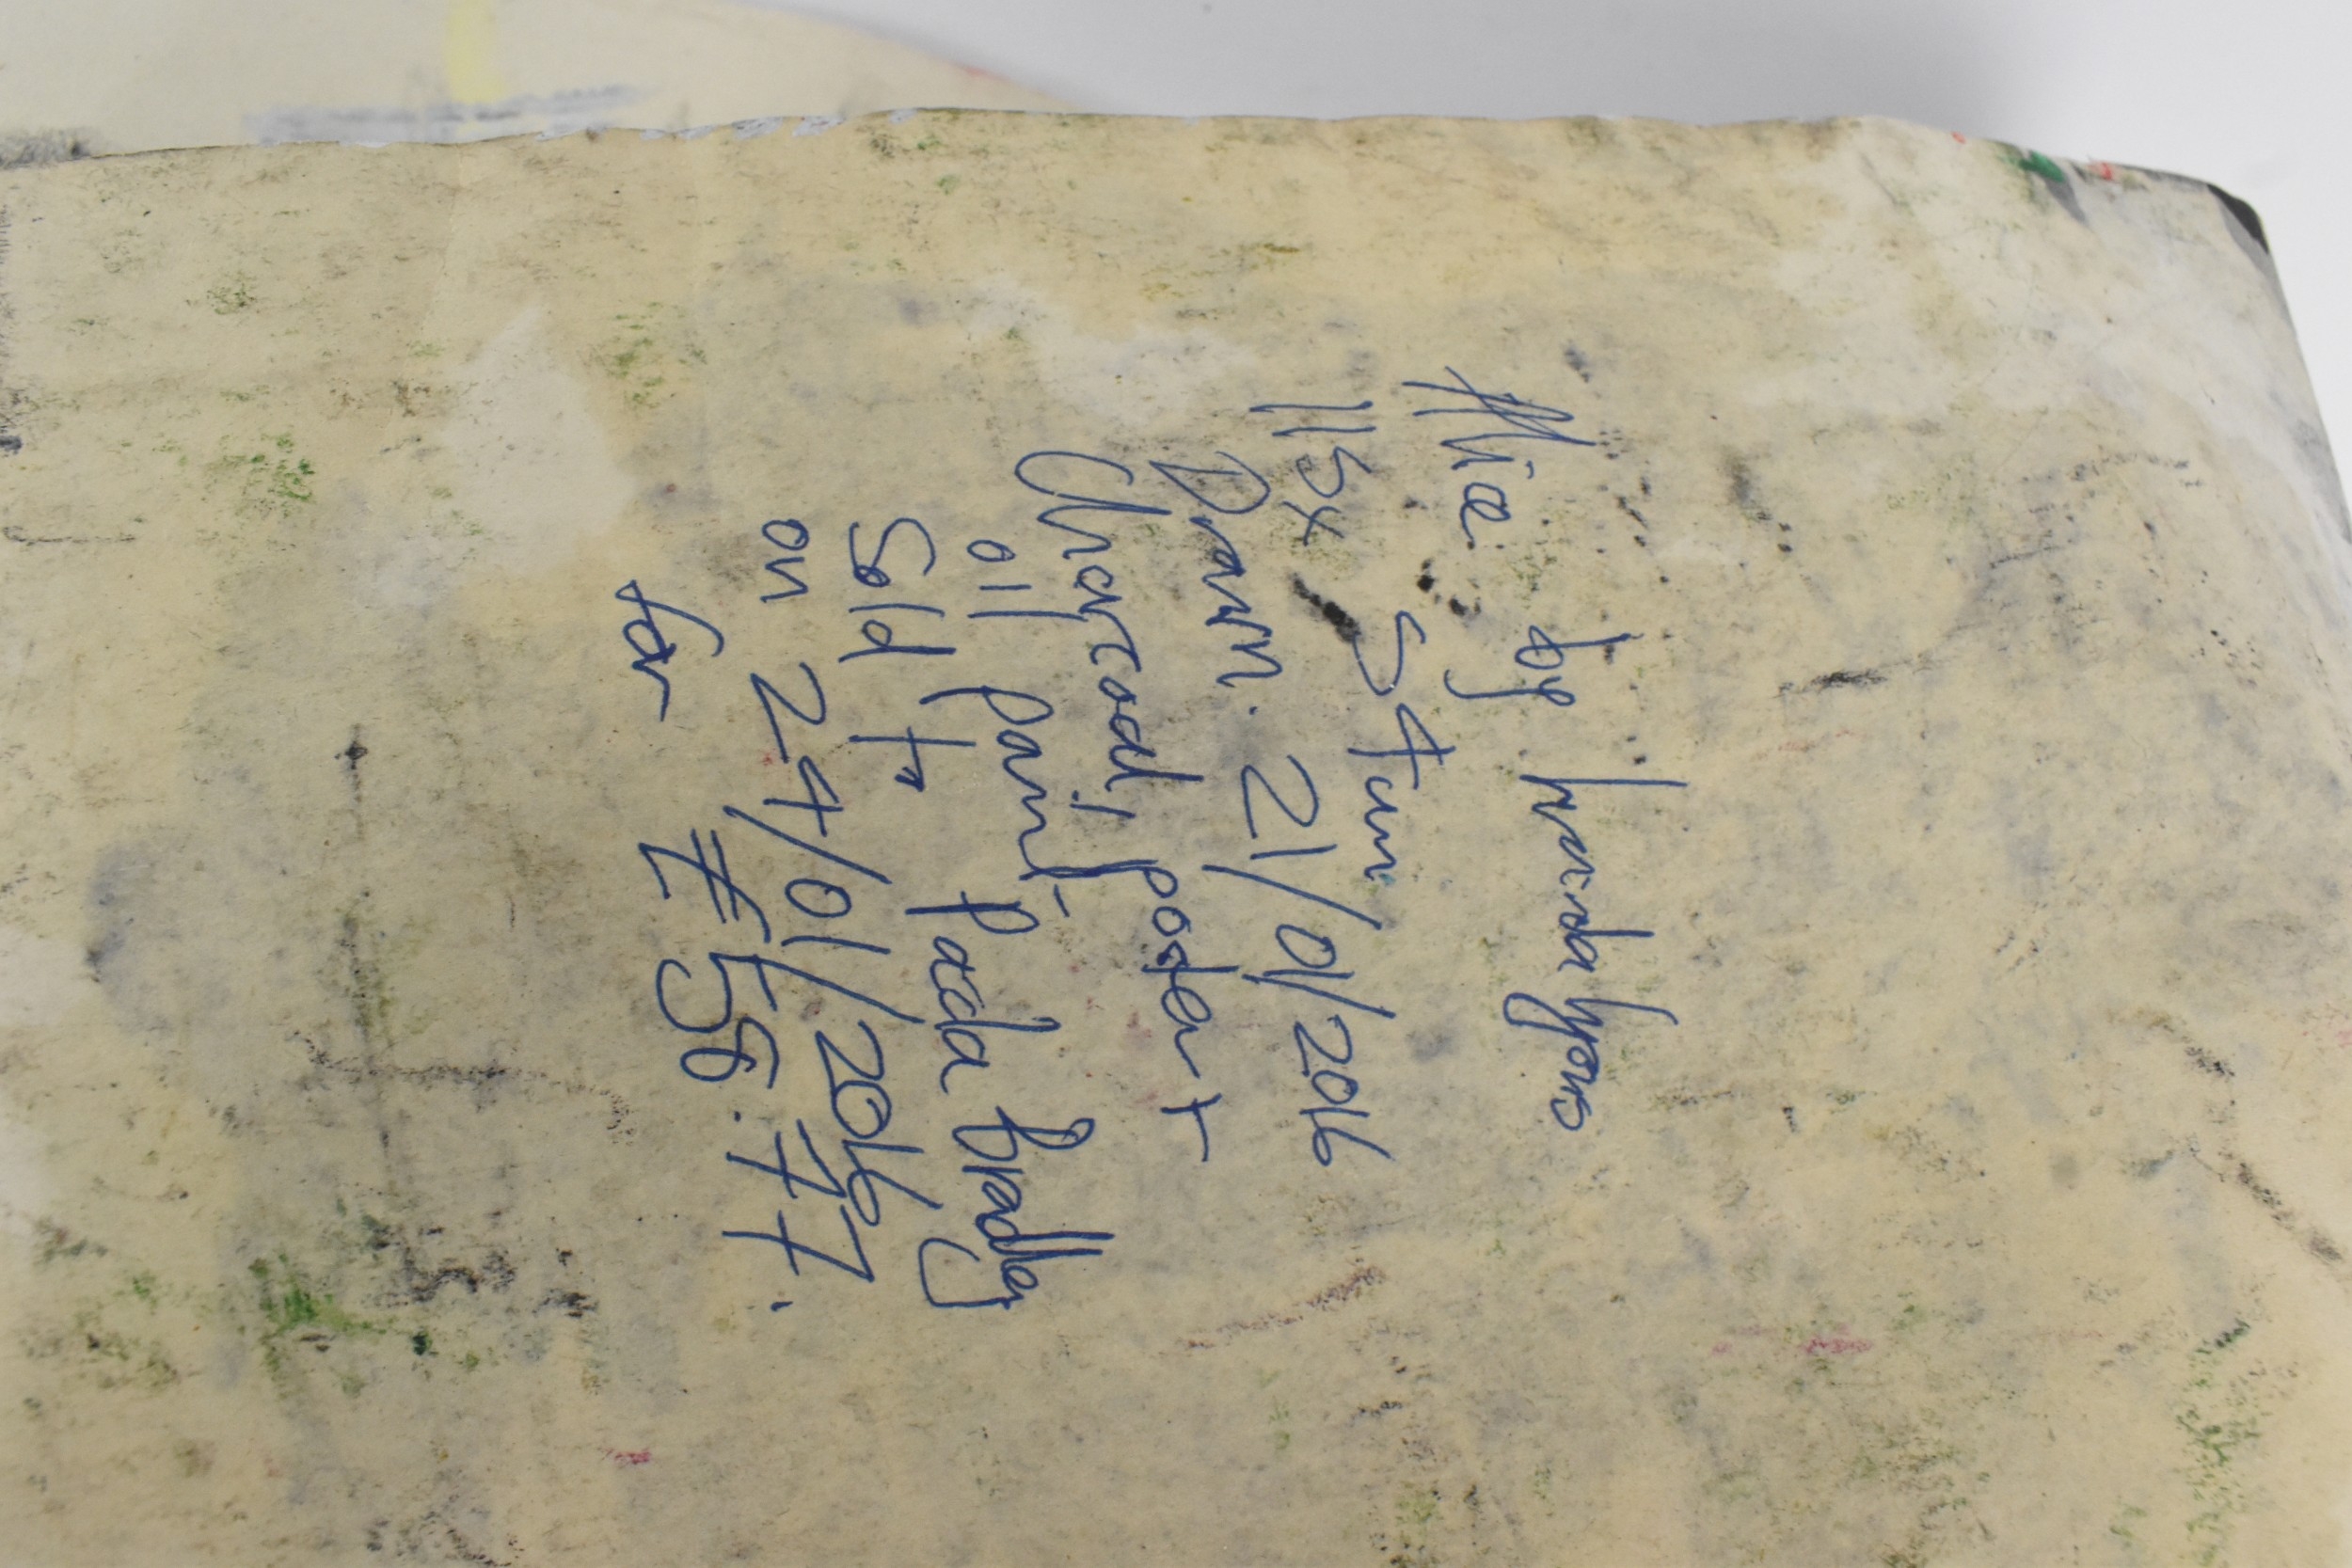 Alice by
115 x 57 cm
Drawn. 21/01/2016
Charcoal, poster +
oil paint
Sold to Paola Bradley
on 24/01/2017
for £56.77.